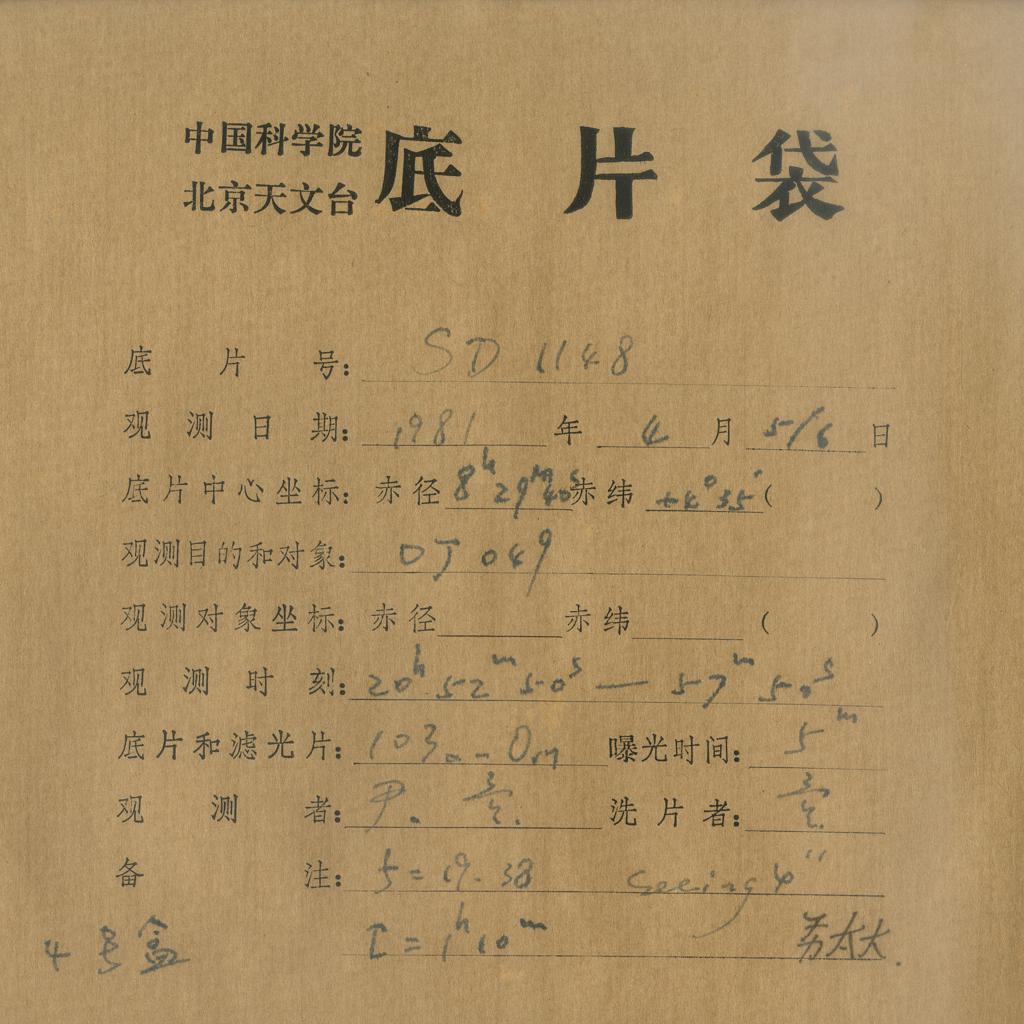 中国科学院
北京天文台
底片袋
底片号: SD 1148
观测日期: 1981 年 4 月 5/6 日
底片中心坐标: 赤径 8h 29m 40s 赤纬 +4° 35' ( )
观测目的和对象: OJ 049
观测对象坐标: 赤径 赤纬 ( )
观测时刻: 20h 52m 50s — 57m 50s
底片和滤光片: 103a-O 曝光时间: 5m
观测者: 尹. 洗片者:
备注: 5=19.38 seeing 4"
t = 1h10m
4号盒